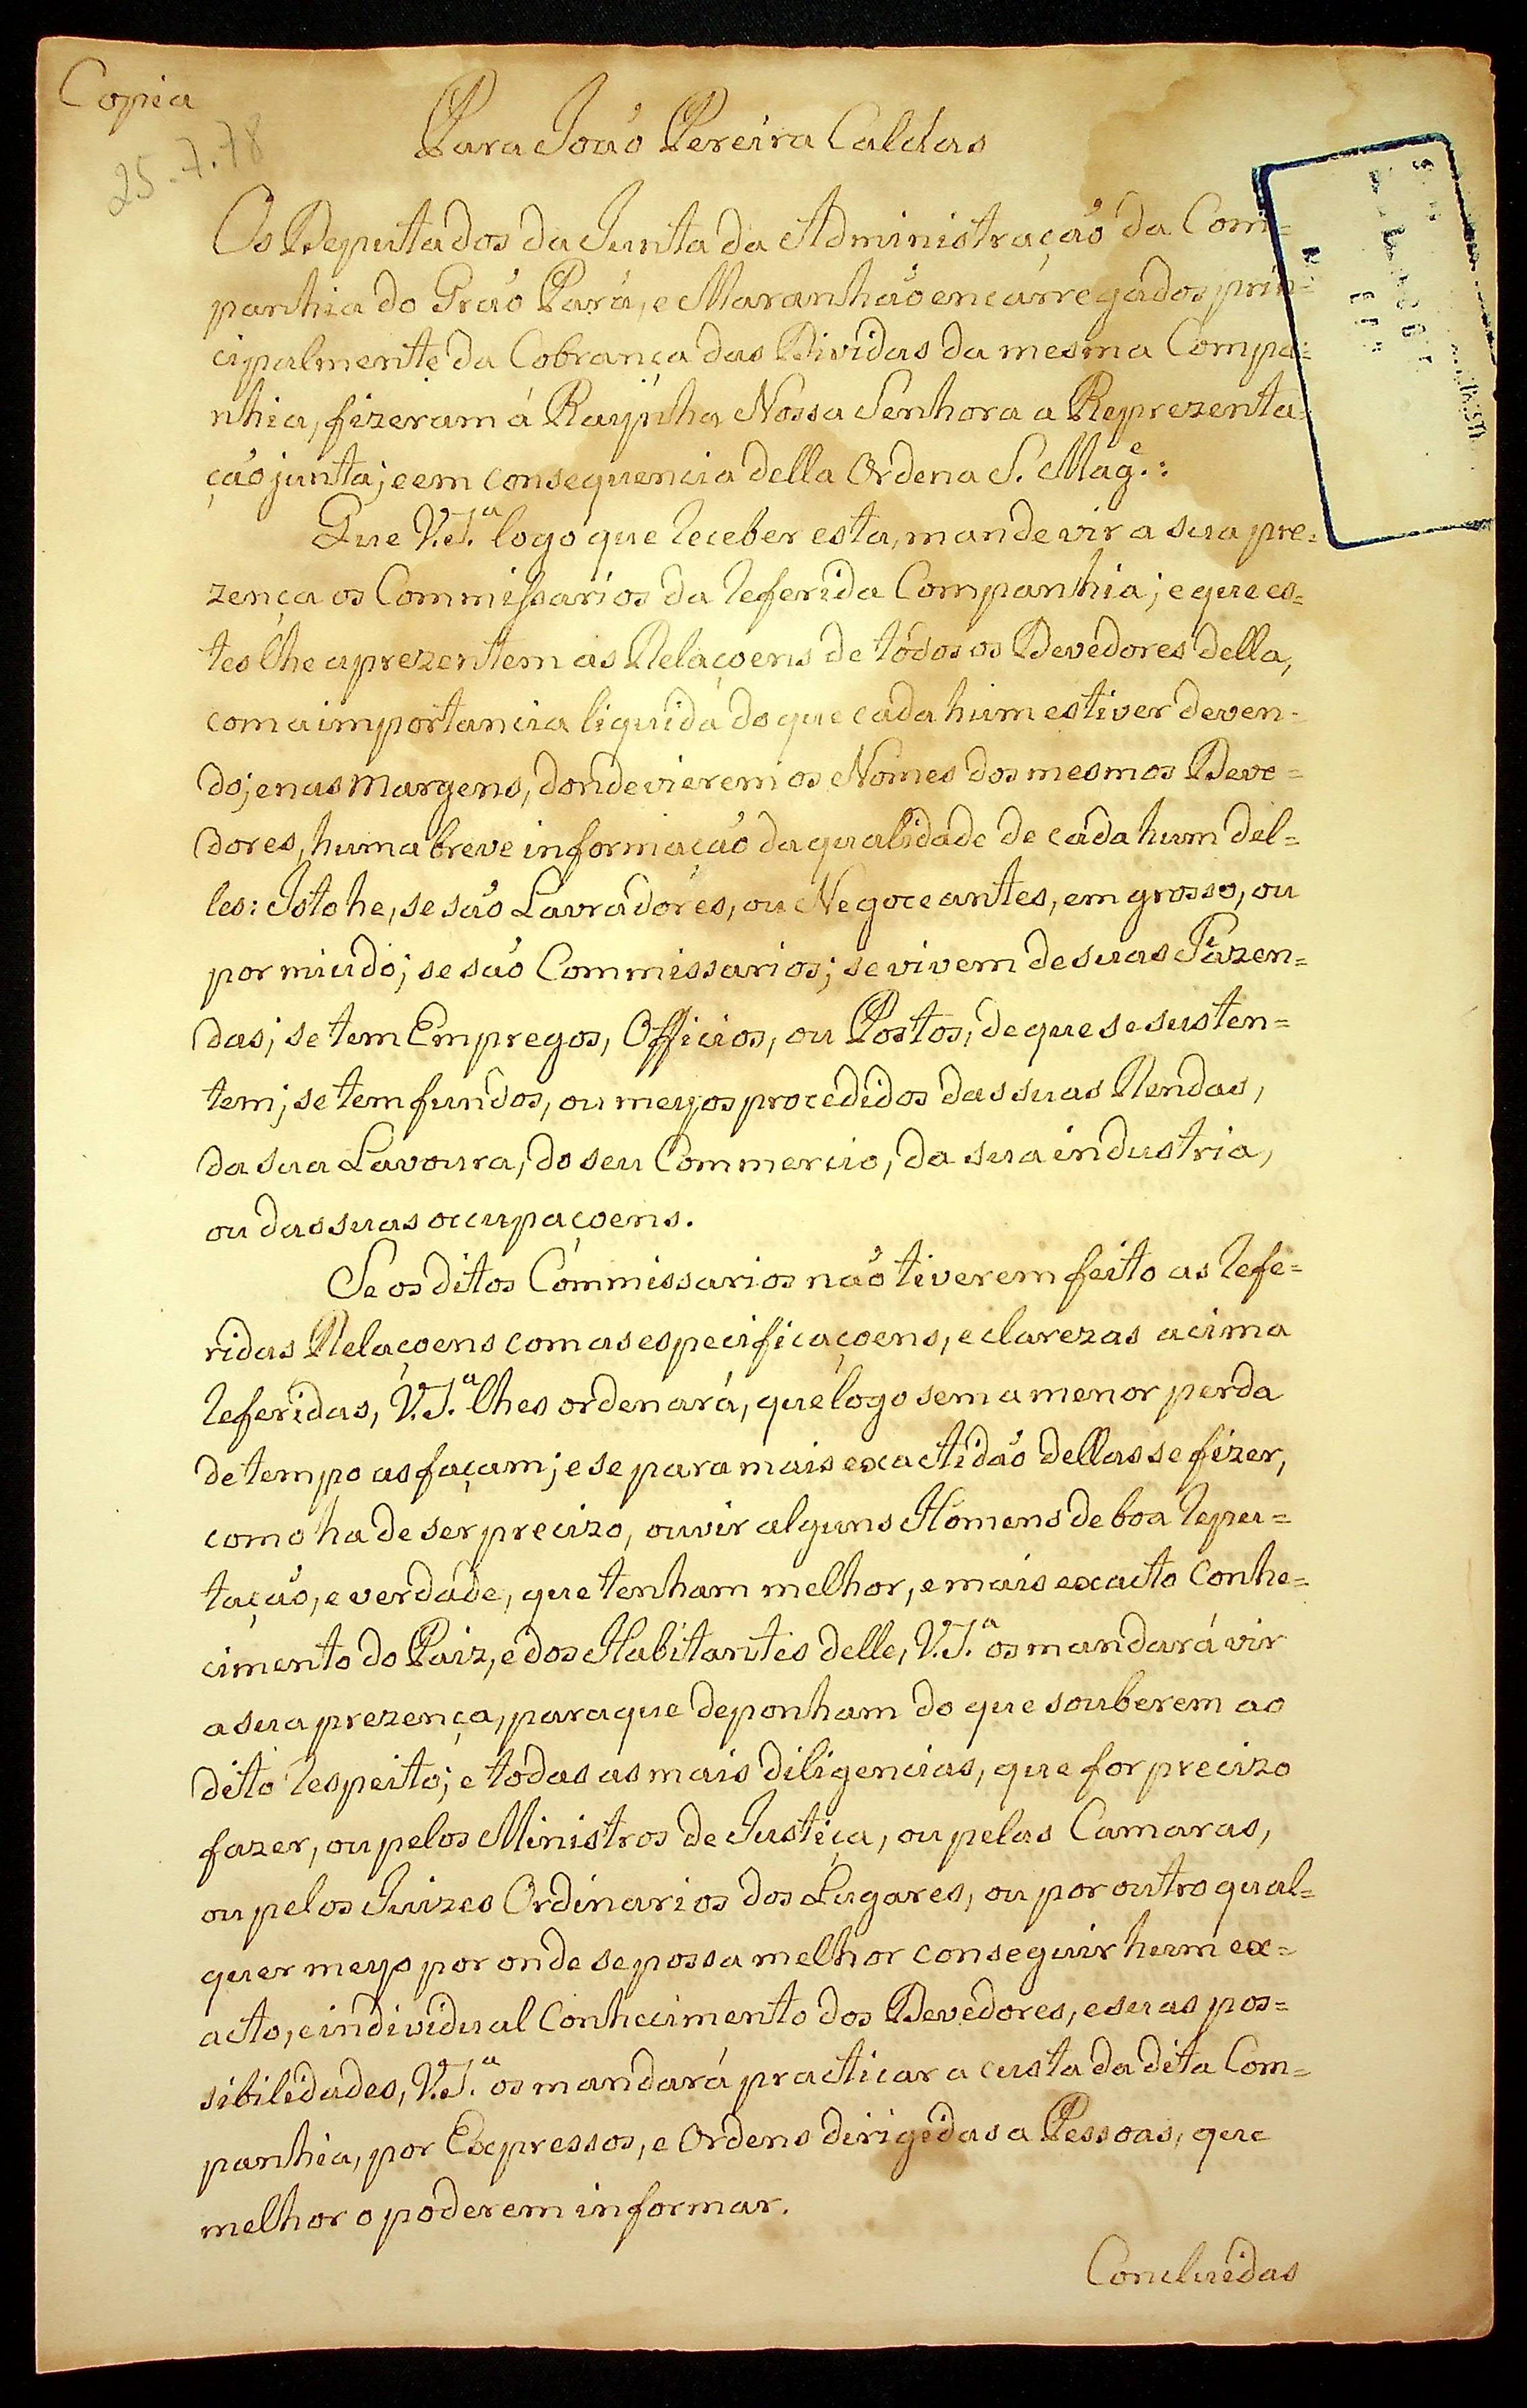 Copia
25.7.78
Para João Pereira Caldas
Os Deputados da Junta da Administração da Com=
panhia do Grão Pará, e Maranhão encarregados prin=
cipalmente da Cobrança das Dividas da mesma Compa=
nhia, fizeram á Raynha Nossa Senhora a Reprezenta=
ção junta; e em consequencia della Ordena S. Mag.e:
Que V.S.a logo que receber esta, mande vir a sua pre=
zença os Commissarios da referida Companhia; e que es=
tes lhe aprezentem as Relaçoens de todos os Devedores della,
com a importancia liquida do que cada hum estiver deven=
do; e nas margens, donde vierem os Nomes dos mesmos Deve=
dores, huma breve informação da qualidade de cada hum del=
les: Isto he, se são Lavradores, ou Negoceantes, em grosso, ou
por miudo; se são Commissarios; se vivem de suas Fazen=
das; se tem Empregos, Officios, ou Postos, de que se susten=
tem; se tem fundos, ou meyos procedidos das suas Rendas,
da sua Lavoura, do seu Commercio, da sua industria,
ou das suas occupaçoens.
Se os ditos Commissarios não tiverem feito as refe=
ridas Relaçoens com as especificaçoens, e clarezas acima
referidas, V.S.a lhes ordenará, que logo sem a menor perda
de tempo as façam; e se para mais exactidão dellas se fizer,
como ha de ser precizo, ouvir alguns Homens de boa repu=
tação, e verdade, que tenham melhor, e mais exacto conhe=
cimento do Paiz, e dos Habitantes delle, V.S.a os mandará vir
a sua prezença, para que deponham do que souberem ao
dito respeito; e todas as mais diligencias, que for precizo
fazer, ou pelos Ministros de Justiça, ou pelas Camaras,
ou pelos Juizes Ordinarios dos Lugares, ou por outro qual=
quer meyo por onde se possa melhor conseguir hum ex=
acto, e individual conhecimento dos Devedores, e suas pos=
sibilidades, V.S.a os mandará practicar a custa da dita Com=
panhia, por Expressos, e Ordens dirigidas a Pessoas, que
melhor o poderem informar.
Concluidas